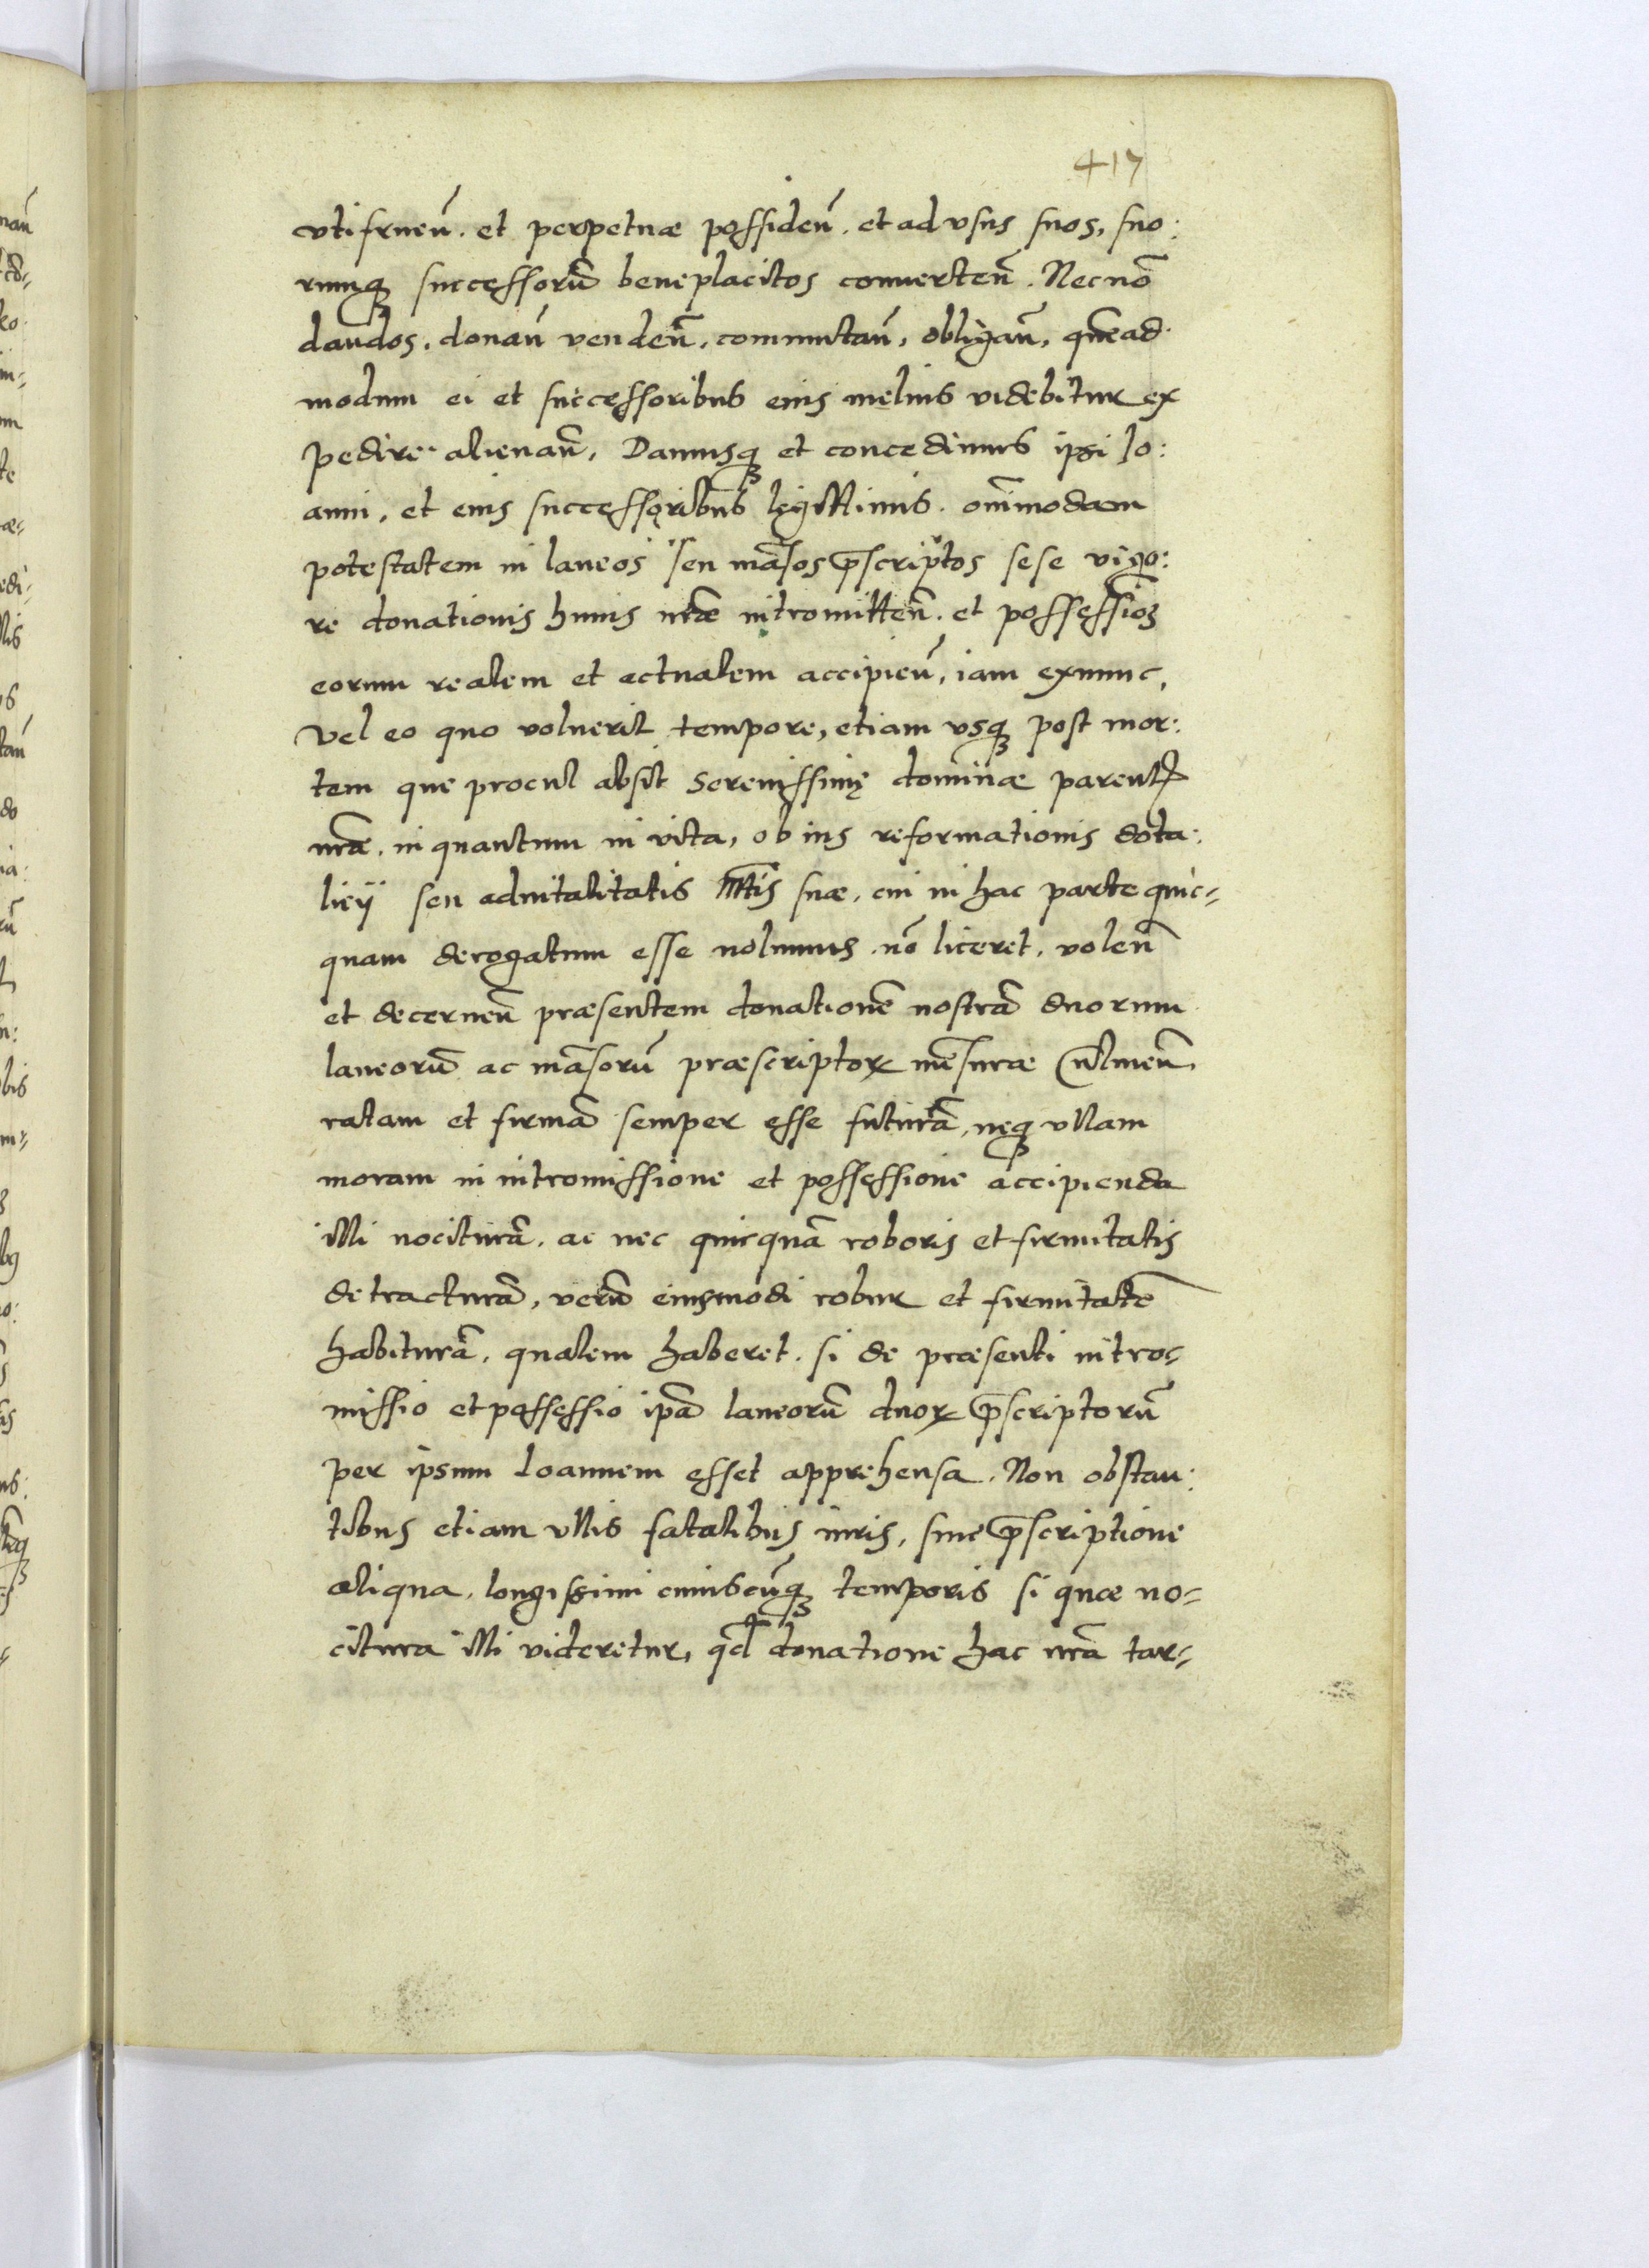 417
vtifrueñ. et perpetuæ possideñ. et ad vsus suos, suo:
rumq; successorũ beneplacitos conuerteñ. Necnõ
dandos, donañ vendeñ, commutañ, obligañ, quẽad
modum ei et successoribus eius melius videbitur ex
pedire alienañ, Damusq; et concedimus ipsi Jo:
anni, et eius successoribus legittimis. om̃imodam
potestatem in laneos seu mãsos p̃scriptos sese vigo:
re donationis huius nr̃æ intromitteñ. et possessioẽ
eorum realem et actualem accipieñ, iam exnunc,
Vel eo quo voluerit tempore, etiam vsq; post mor:
tem que procul absit Serenissimę dominæ parentis
nr̃æ. in quantum in vita, ob ius reformationis dota:
licij seu aduitalitatis Mtis suæ, cui in hac parte quic-
quam derogatum esse nolumus. nõ liceret. voleñ
et decerneñ præsentem donationẽ nostrã duorum
laneorũ ac mãsorũ præscriptor mẽsuræ Culmeñ.
ratam et firmã semper esse futurã, neq; vllam
moram in intromissione et possessione accipienda
illi nociturã. ac nec quicquã roboris et firmitatis
detracturã, verũ eiusmodi robur et firmitatẽ
habiturã, qualem haberet. si de præsenti intro-
missio et possessio ip̃a laneorũ duor p̃scriptorũ
per ipsum Ioannem esset apprehensa. Non obstan:
tibus etiam vllis fatalibus iuris, siue p̃scriptione
aliqua, longissimi cuiuscũq; temporis si quæ no-
citura illi videretur, qd donatione hac nr̃a tar-